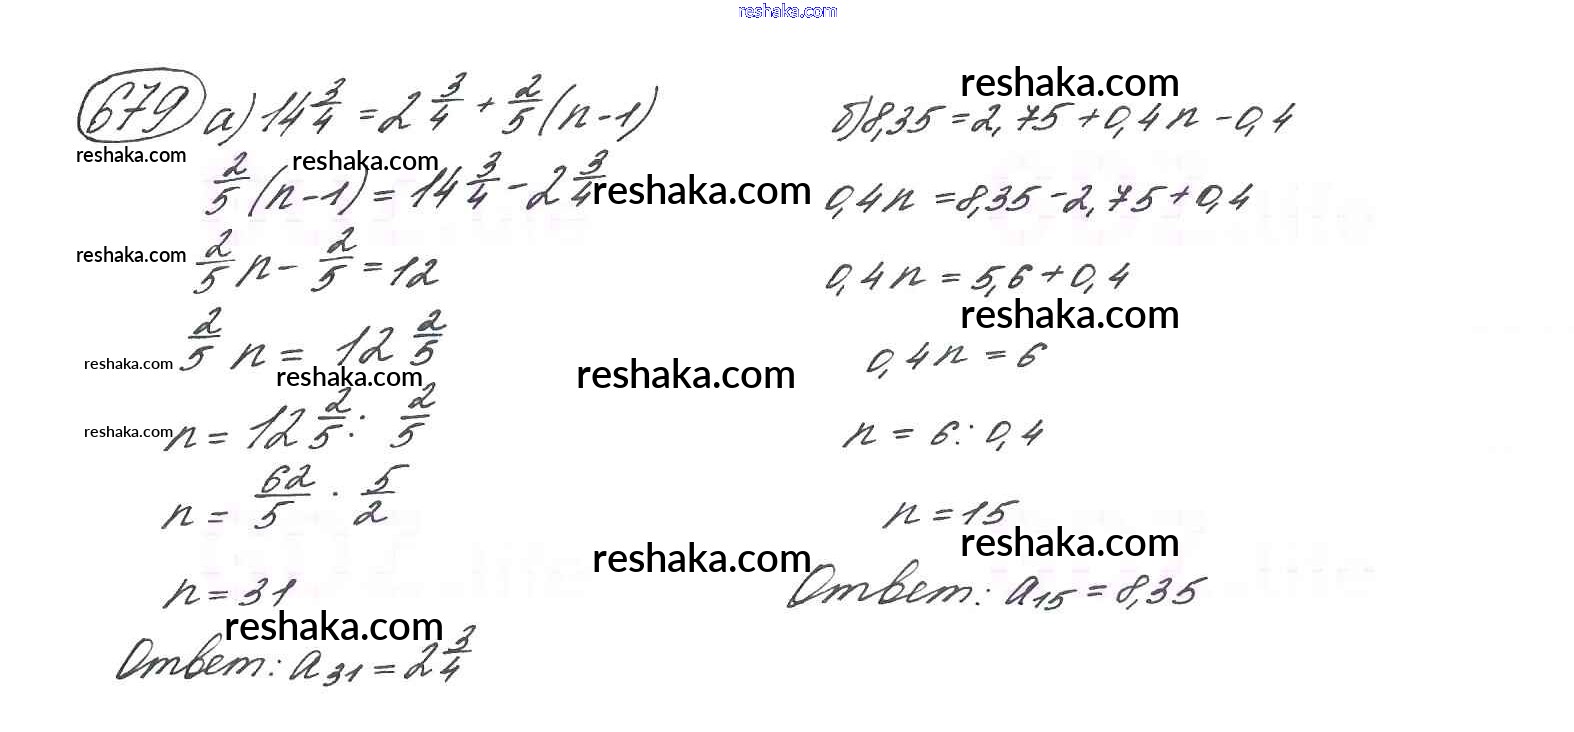 reshaka.com
679 а) 14 3/4 = 2 3/4 + 2/5 (n - 1)
2/5 (n - 1) = 14 3/4 - 2 3/4
2/5 n - 2/5 = 12
2/5 n = 12 2/5
n = 12 2/5 : 2/5
n = 62/5 · 5/2
n = 31
Ответ: a31 = 2 3/4
б) 8,35 = 2,75 + 0,4n - 0,4
0,4n = 8,35 - 2,75 + 0,4
0,4n = 5,6 + 0,4
0,4n = 6
n = 6 : 0,4
n = 15
Ответ: a15 = 8,35
reshaka.com
reshaka.com
reshaka.com
reshaka.com
reshaka.com
reshaka.com
reshaka.com
reshaka.com
reshaka.com
reshaka.com
reshaka.com
reshaka.com
reshaka.com